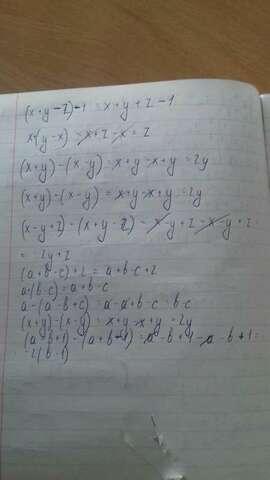 (x+y-z)-1 = x+y+z-1
x+(y-x) = x+z-x = z
(x+y)-(x-y) = x+y-x+y = 2y
(x+y)-(x-y) = x+y-x+y = 2y
(x-y+z)-(x+y-z) = x-y+z-x-y+z
= 2y+z
(a+b-c)+2 = a+b-c+2
a+(b-c) = a+b-c
a-(a-b+c) = a-a+b-c = b-c
(x+y)-(x-y) = x+y-x+y = 2y
(a-b+1)-(a+b-1) = a-b+1-a-b+1 =